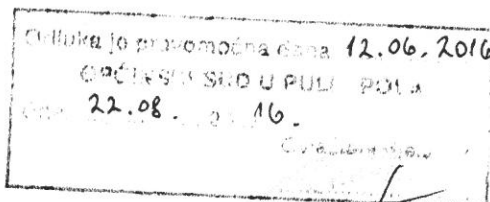 Odluka je pravomoćna dana 12.06.2016
OPĆINSKI SUD U PULI POLA
dana 22.08. 16.